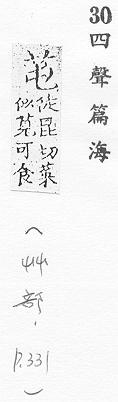 30 四聲篇海
芚 徒昆切菜
似莧可食
(艸部, p.331)